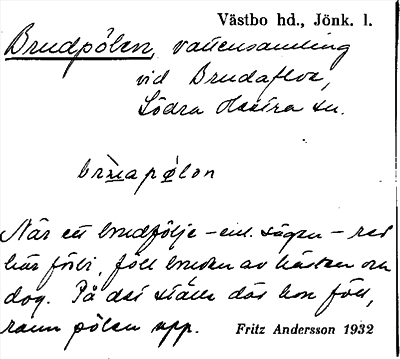 Västbo hd., Jönk. l.
Brudpölen, vattensamling
vid Brudafloa,
Södra Hestra sn.
När ett brudfölje – enl. sägen – red
här förbi, föll bruden av hästen och
dog. På det ställe där hon föll,
rann pölen upp. Fritz Andersson 1932